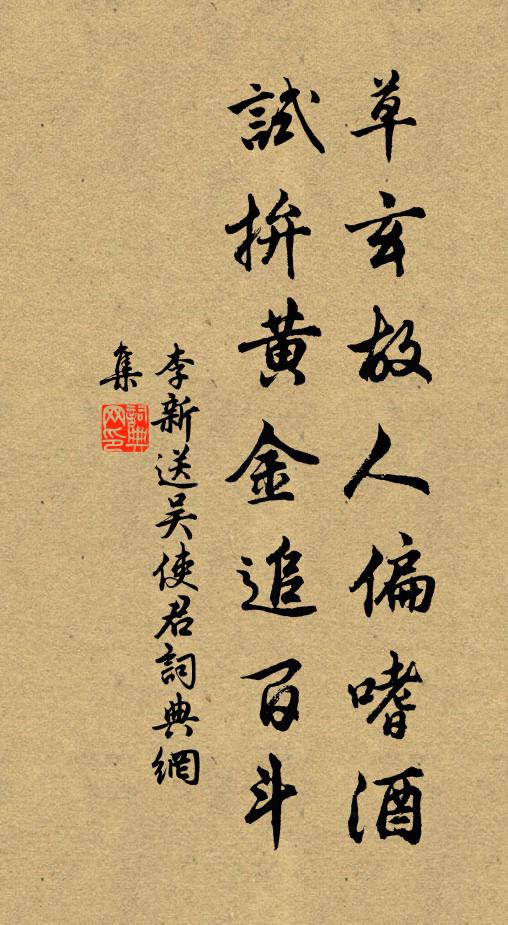 草玄故人偏嗜酒
試拚黃金追百斗
李新送吳使君詞典網
集
詞典
网印